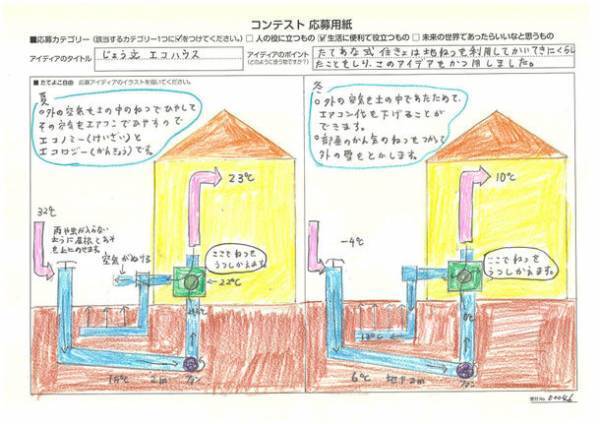 コンテスト 応募用紙
■応募カテゴリー(該当するカテゴリー1つに✓をつけてください。) □人の役に立つもの ☑生活に便利で役立つもの □未来の世界であったらいいなと思うもの
アイディアのタイトル
じょう立 エコハウス
アイディアのポイント
(どのように使う物ですか?)
たてあな式住きょは地ねつを利用してかいてきにくらし
たこともしり、このアイデアをかつ用しました。
■たてよこ自由 応募アイディアのイラストを描いてください。
夏
○外の空気を土の中のねつでひやして
その空気をエアコンでひやすので
エコノミー(けいざい)と
エコロジー(かんきょう)です。
32℃
雨や虫が入らない
ように屋根とあみ
空気がぬける
23℃
ここでねつを
うつしかえます。
22℃
2m
ファン
冬
○外の空気を土の中であたためて、
エアコン代を下げることが
できます。
○部屋のかん気のねつをつかって
外の雪をとかします。
-4℃
10℃
ここでねつを
うつしかえます。
6℃
地下2m
ファン